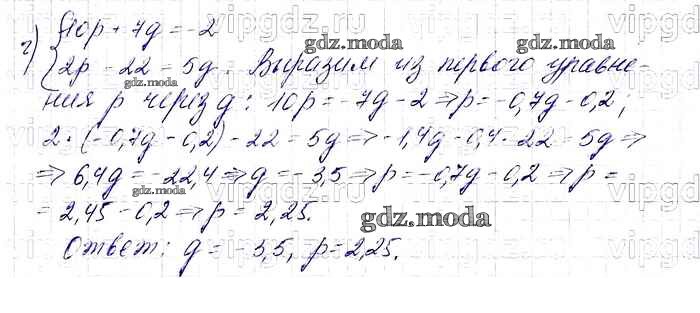 г) { 10p + 7g = -2
{ 2p - 22 = 5g. Выразим из первого уравне-
ния p через g: 10p = -7g - 2 ⇒ p = -0,7g - 0,2;
2·(-0,7g - 0,2) - 22 = 5g ⇒ -1,4g - 0,4 - 22 = 5g ⇒
⇒ 6,4g = -22,4 ⇒ g = -3,5 ⇒ p = -0,7g - 0,2 ⇒ p =
= 2,45 - 0,2 ⇒ p = 2,25.
Ответ: g = -3,5, p = 2,25.
gdz.moda
gdz.moda
gdz.moda
gdz.moda
gdz.moda
vipgdz.ru